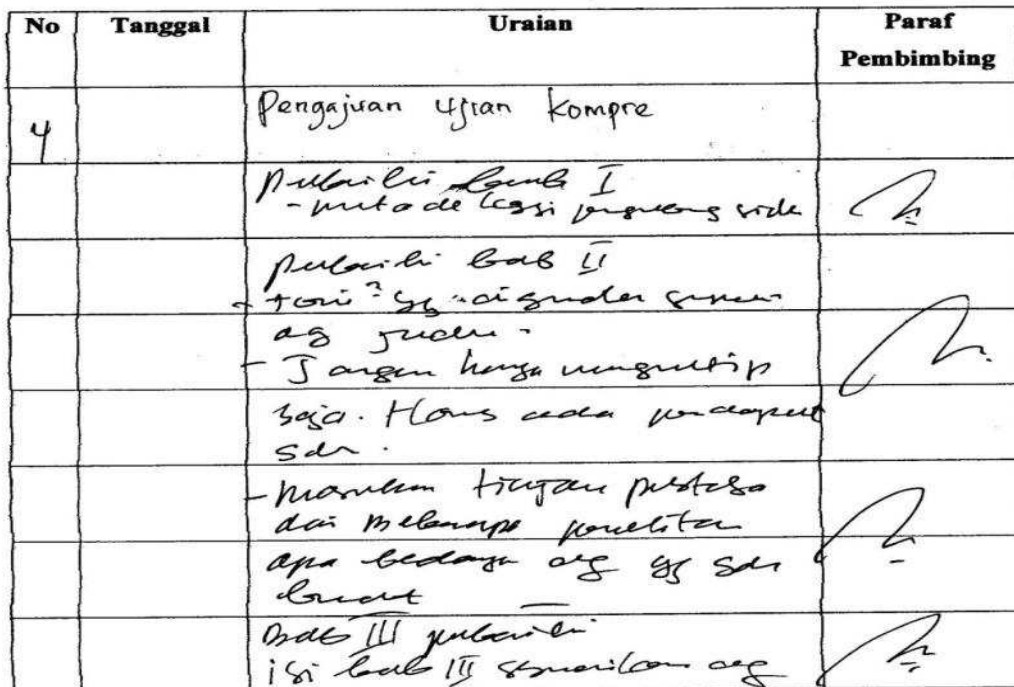 No Tanggal Uraian Paraf
Pembimbing
4 Pengajuan ujian kompre
perbaiki bab I
- metode
perbaiki bab II
- teori² yg digunakan sesuai
dg judul.
- Jangan hanya mengutip
saja. Harus ada pendapat
sdr.
- masukan tinjauan pustaka
dari beberapa penelitian
apa bedanya dg yg sdr
buat
Bab III perbaiki
isi bab III sesuaikan dg